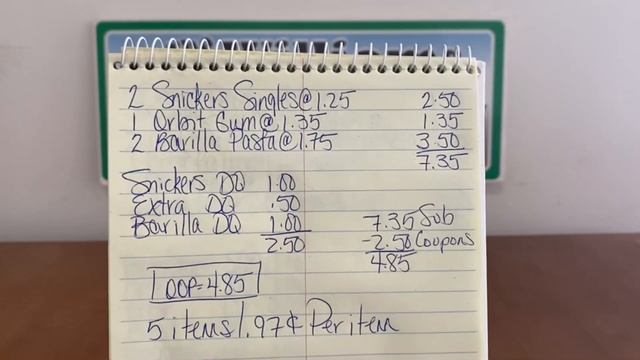 2 Snickers Singles@1.25 2.50
1 Orbit Gum@1.35 1.35
2 Barilla Pasta@1.75 3.50
7.35
Snickers DQ 1.00
Extra DQ .50
Barilla DQ 1.00
2.50
7.35 Sub
-2.50 Coupons
4.85
OOP=4.85
5 items/.97¢ Per item